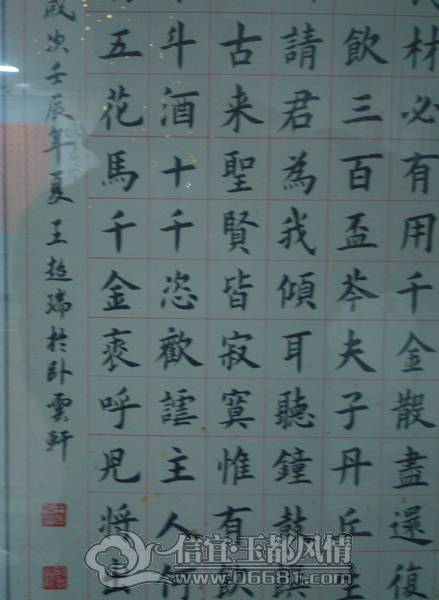 材必有用千金散盡還復
飲三百盃芩夫子丹丘生
請君為我傾耳聽鐘鼓饌
古来聖賢皆寂寞惟有飲
斗酒十千恣歡謔主人何
五花馬千金裘呼兒将出
歲次壬辰年夏王超瑞於卧雲軒
信宜·玉都风情
www.06681.com